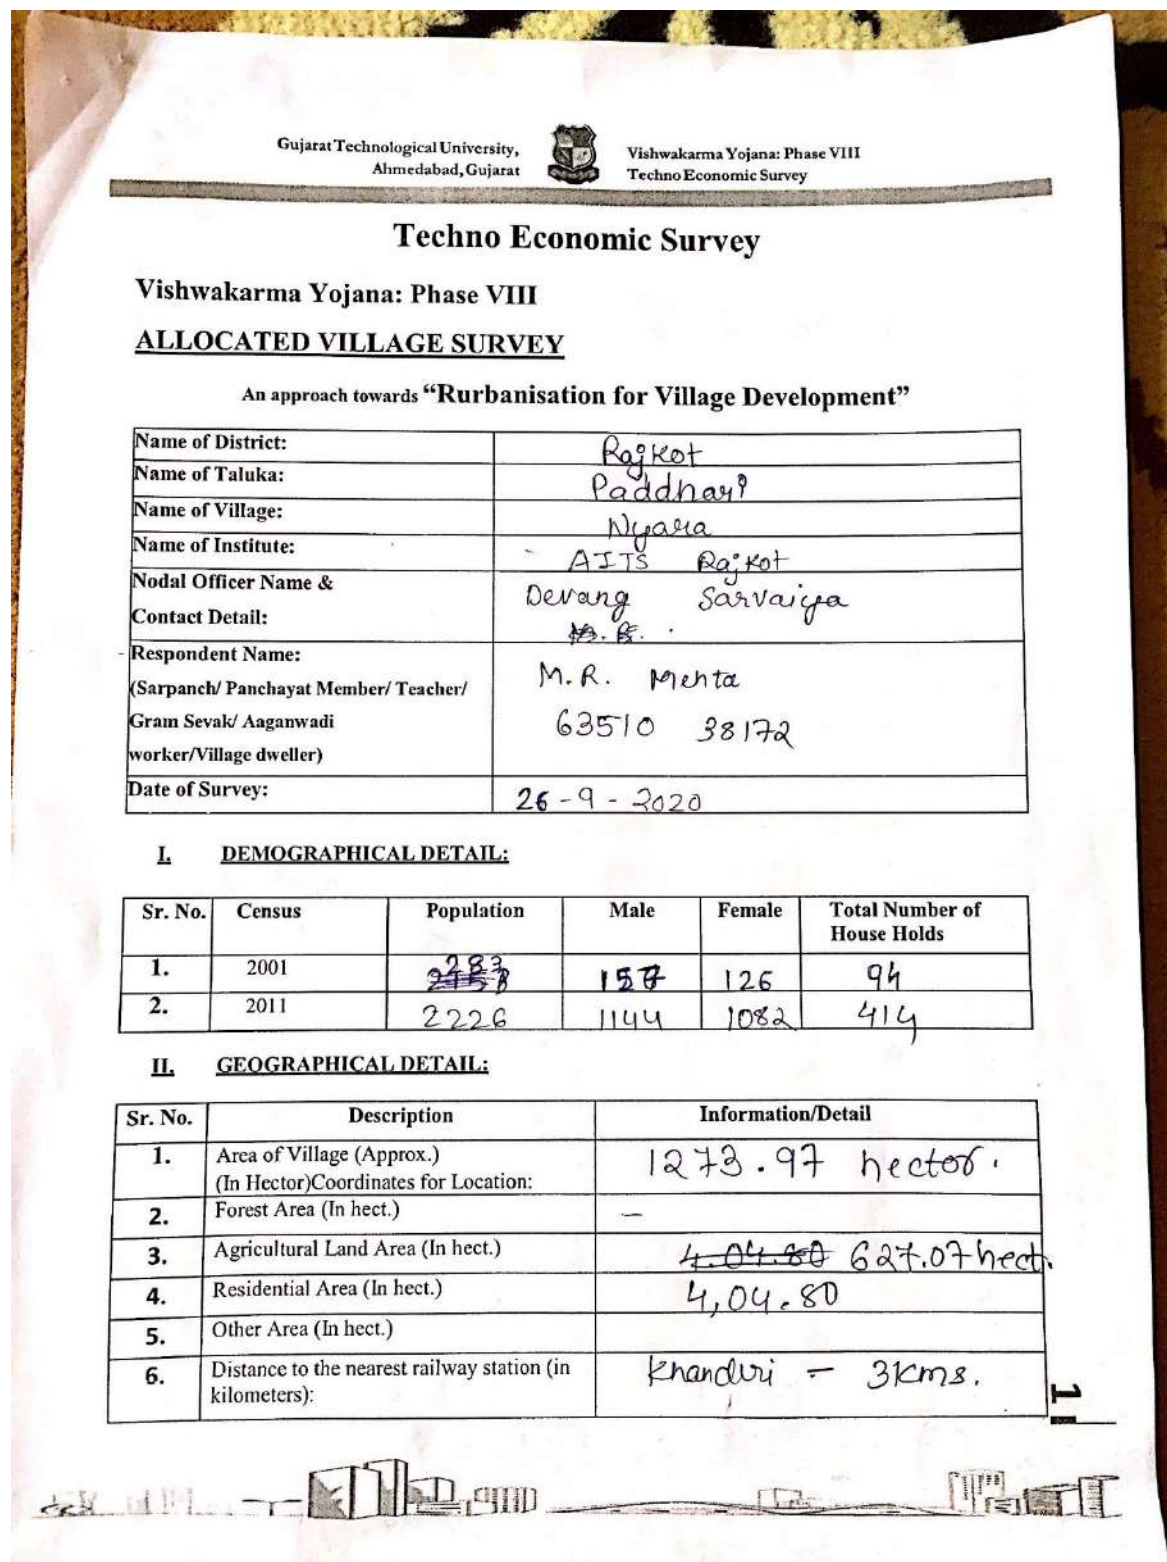 Gujarat Technological University,
Ahmedabad, Gujarat
Vishwakarma Yojana: Phase VIII
Techno Economic Survey
Techno Economic Survey
Vishwakarma Yojana: Phase VIII
ALLOCATED VILLAGE SURVEY
An approach towards “Rurbanisation for Village Development”
Name of District: Rajkot
Name of Taluka: Paddhari
Name of Village: Nyara
Name of Institute: AITS Rajkot
Nodal Officer Name &
Contact Detail: Devang Sarvaiya
Respondent Name:
(Sarpanch/ Panchayat Member/ Teacher/ M.R. Mehta
Gram Sevak/ Aaganwadi 63510 38172
worker/Village dweller)
Date of Survey: 26-9-2020
I. DEMOGRAPHICAL DETAIL:
Sr. No. Census Population Male Female Total Number of
House Holds
1. 2001 283 157 126 94
2. 2011 2226 1144 1082 414
II. GEOGRAPHICAL DETAIL:
Sr. No. Description Information/Detail
1. Area of Village (Approx.) 1273.97 hector.
(In Hector)Coordinates for Location:
2. Forest Area (In hect.) –
3. Agricultural Land Area (In hect.) 4.04.80 627.07 hect.
4. Residential Area (In hect.) 4,04.80
5. Other Area (In hect.)
6. Distance to the nearest railway station (in Khandiri - 3kms.
kilometers):
1